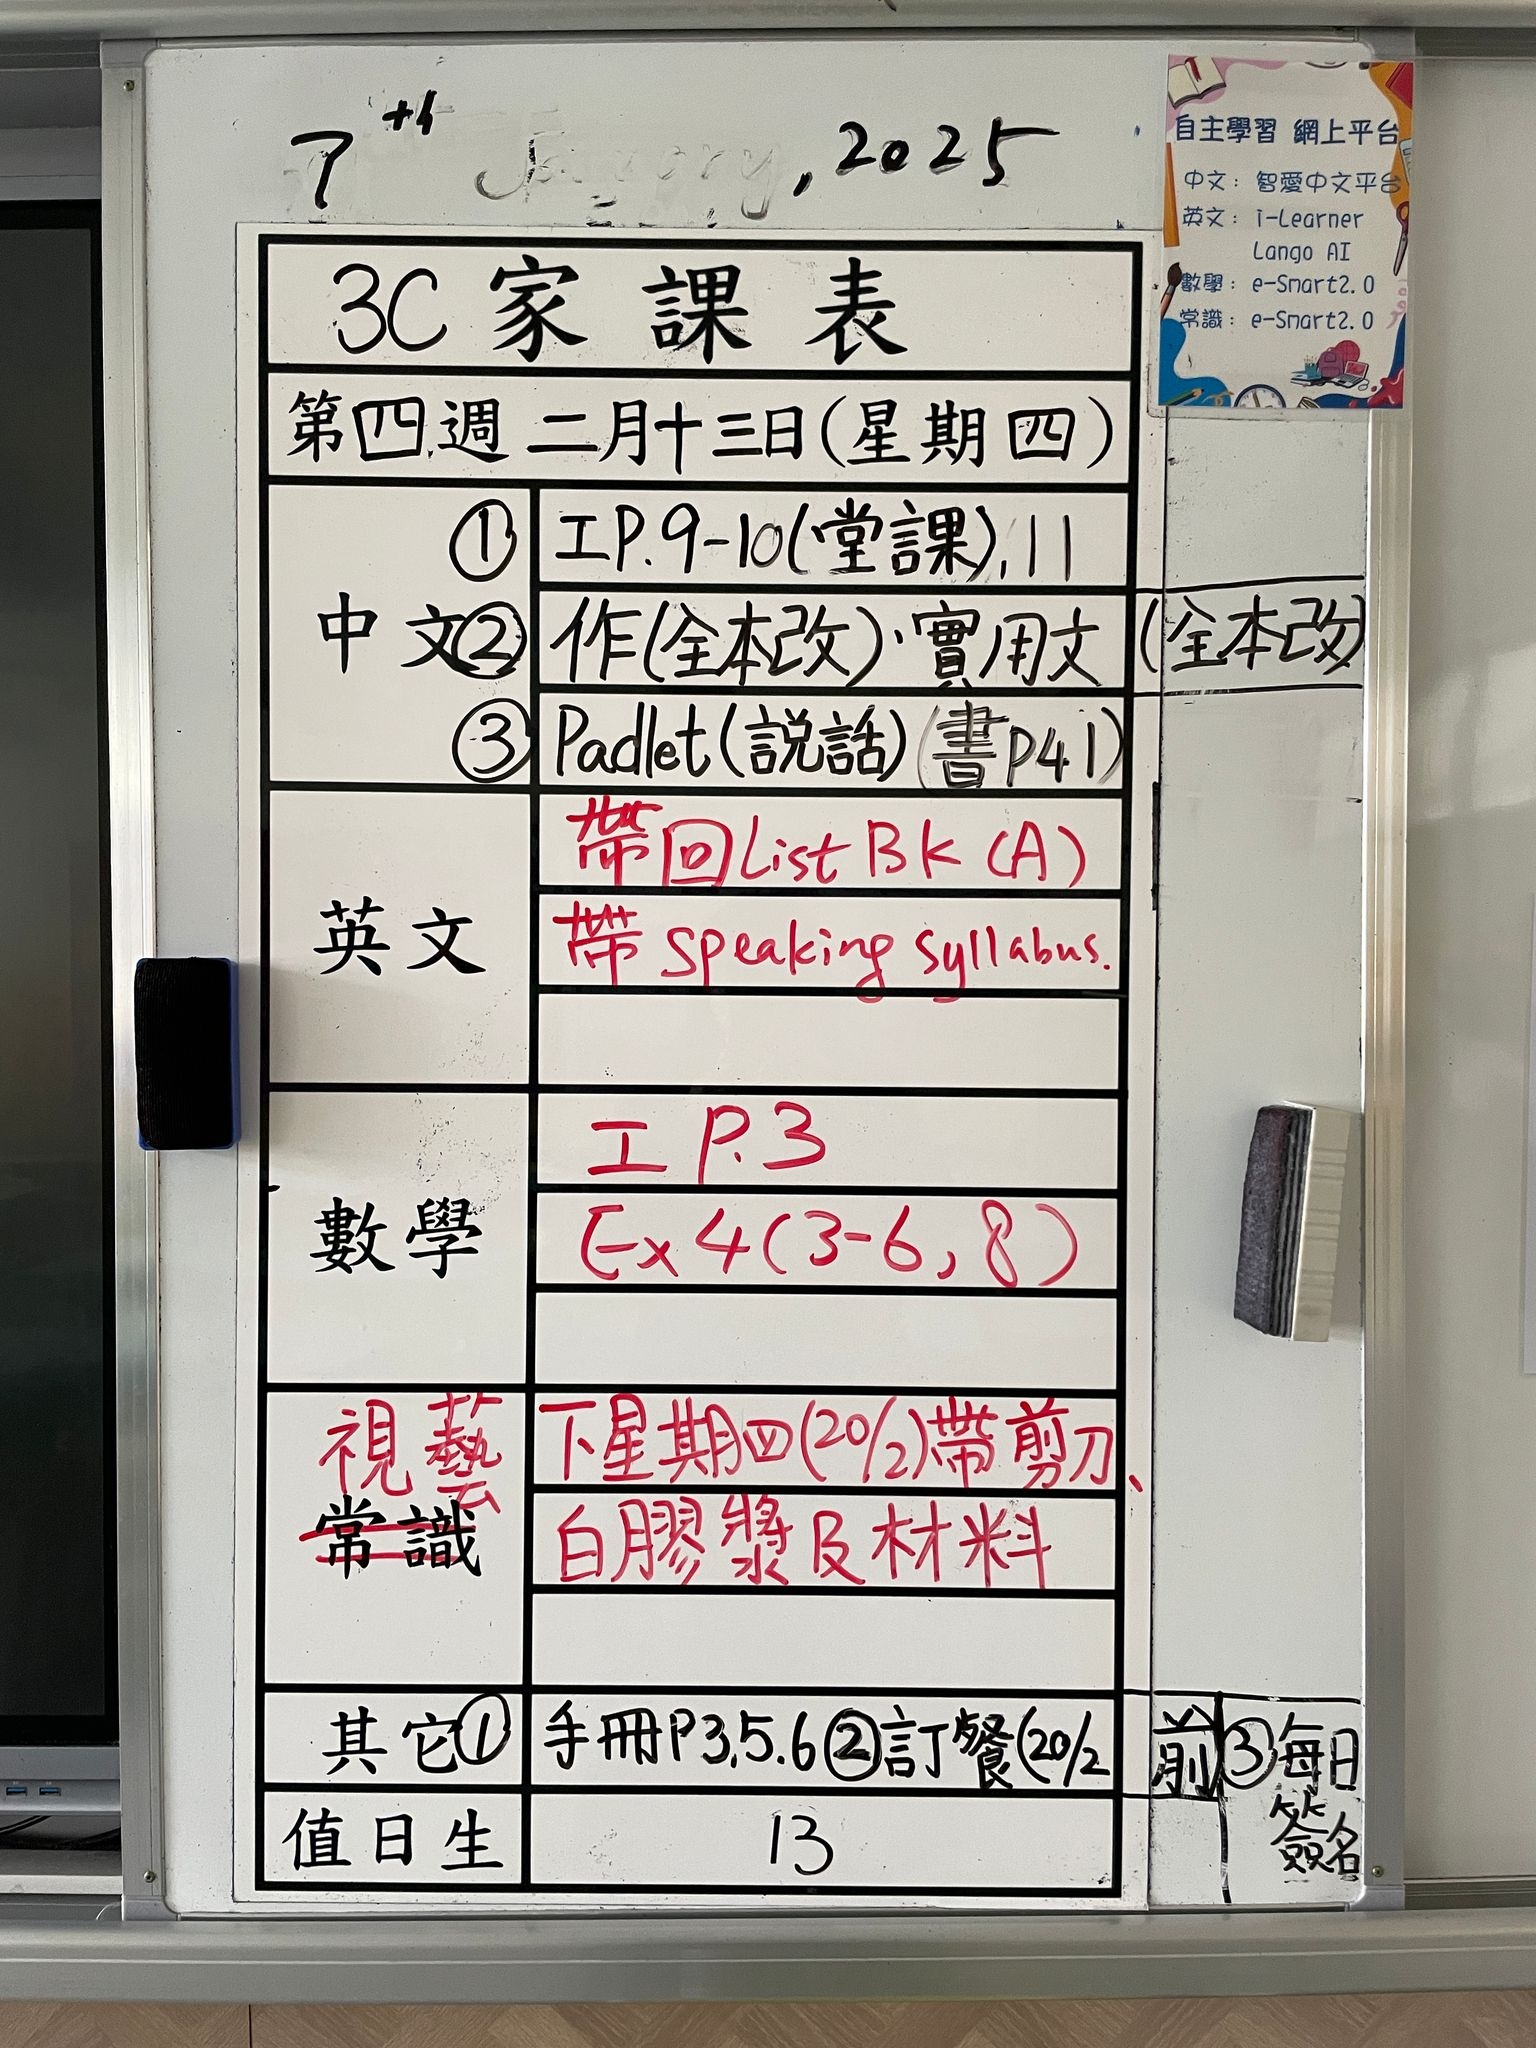 7th January, 2025
自主學習 網上平台
中文：智愛中文平台
英文：i-Learner
Lango AI
數學：e-Smart2.0
常識：e-Smart2.0
3C 家課表
第四週 二月十三日(星期四)
中文
① 工P.9-10(堂課),11
② 作(全本改)、實用文(全本改)
③ Padlet(說話)(書P41)
英文
帶回List BK (A)
帶 speaking syllabus.
數學
工 P.3
Ex 4(3-6, 8)
視藝
常識
下星期四(20/2)帶剪刀、
白膠漿及材料
其它 ① 手冊P3,5.6 ② 訂餐(20/2前 ③ 每日
簽名
值日生 13